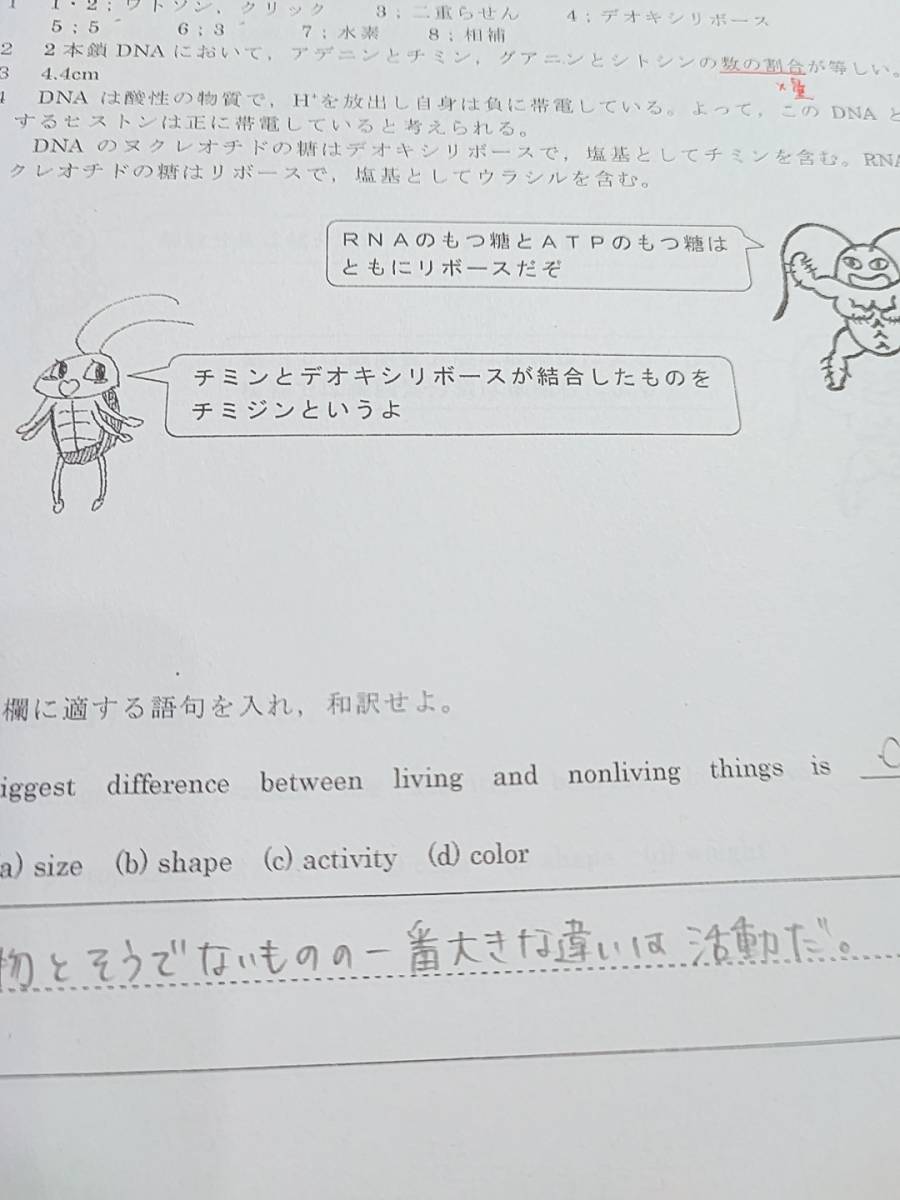 1 1・2；ワトソン，クリック 3；二重らせん 4；デオキシリボース
5；5´ 6；3´ 7；水素 8；相補
2 2本鎖DNAにおいて，アデニンとチミン，グアニンとシトシンの数の割合が等しい。
×量
3 4.4cm
4 DNAは酸性の物質で，H⁺を放出し自身は負に帯電している。よって，このDNAと
するヒストンは正に帯電していると考えられる。
DNAのヌクレオチドの糖はデオキシリボースで，塩基としてチミンを含む。RNA
クレオチドの糖はリボースで，塩基としてウラシルを含む。
RNAのもつ糖とATPのもつ糖は
ともにリボースだぞ
チミンとデオキシリボースが結合したものを
チミジンというよ
欄に適する語句を入れ，和訳せよ。
iggest difference between living and nonliving things is
a) size (b) shape (c) activity (d) color
物とそうでないものの一番大きな違いは活動だ。